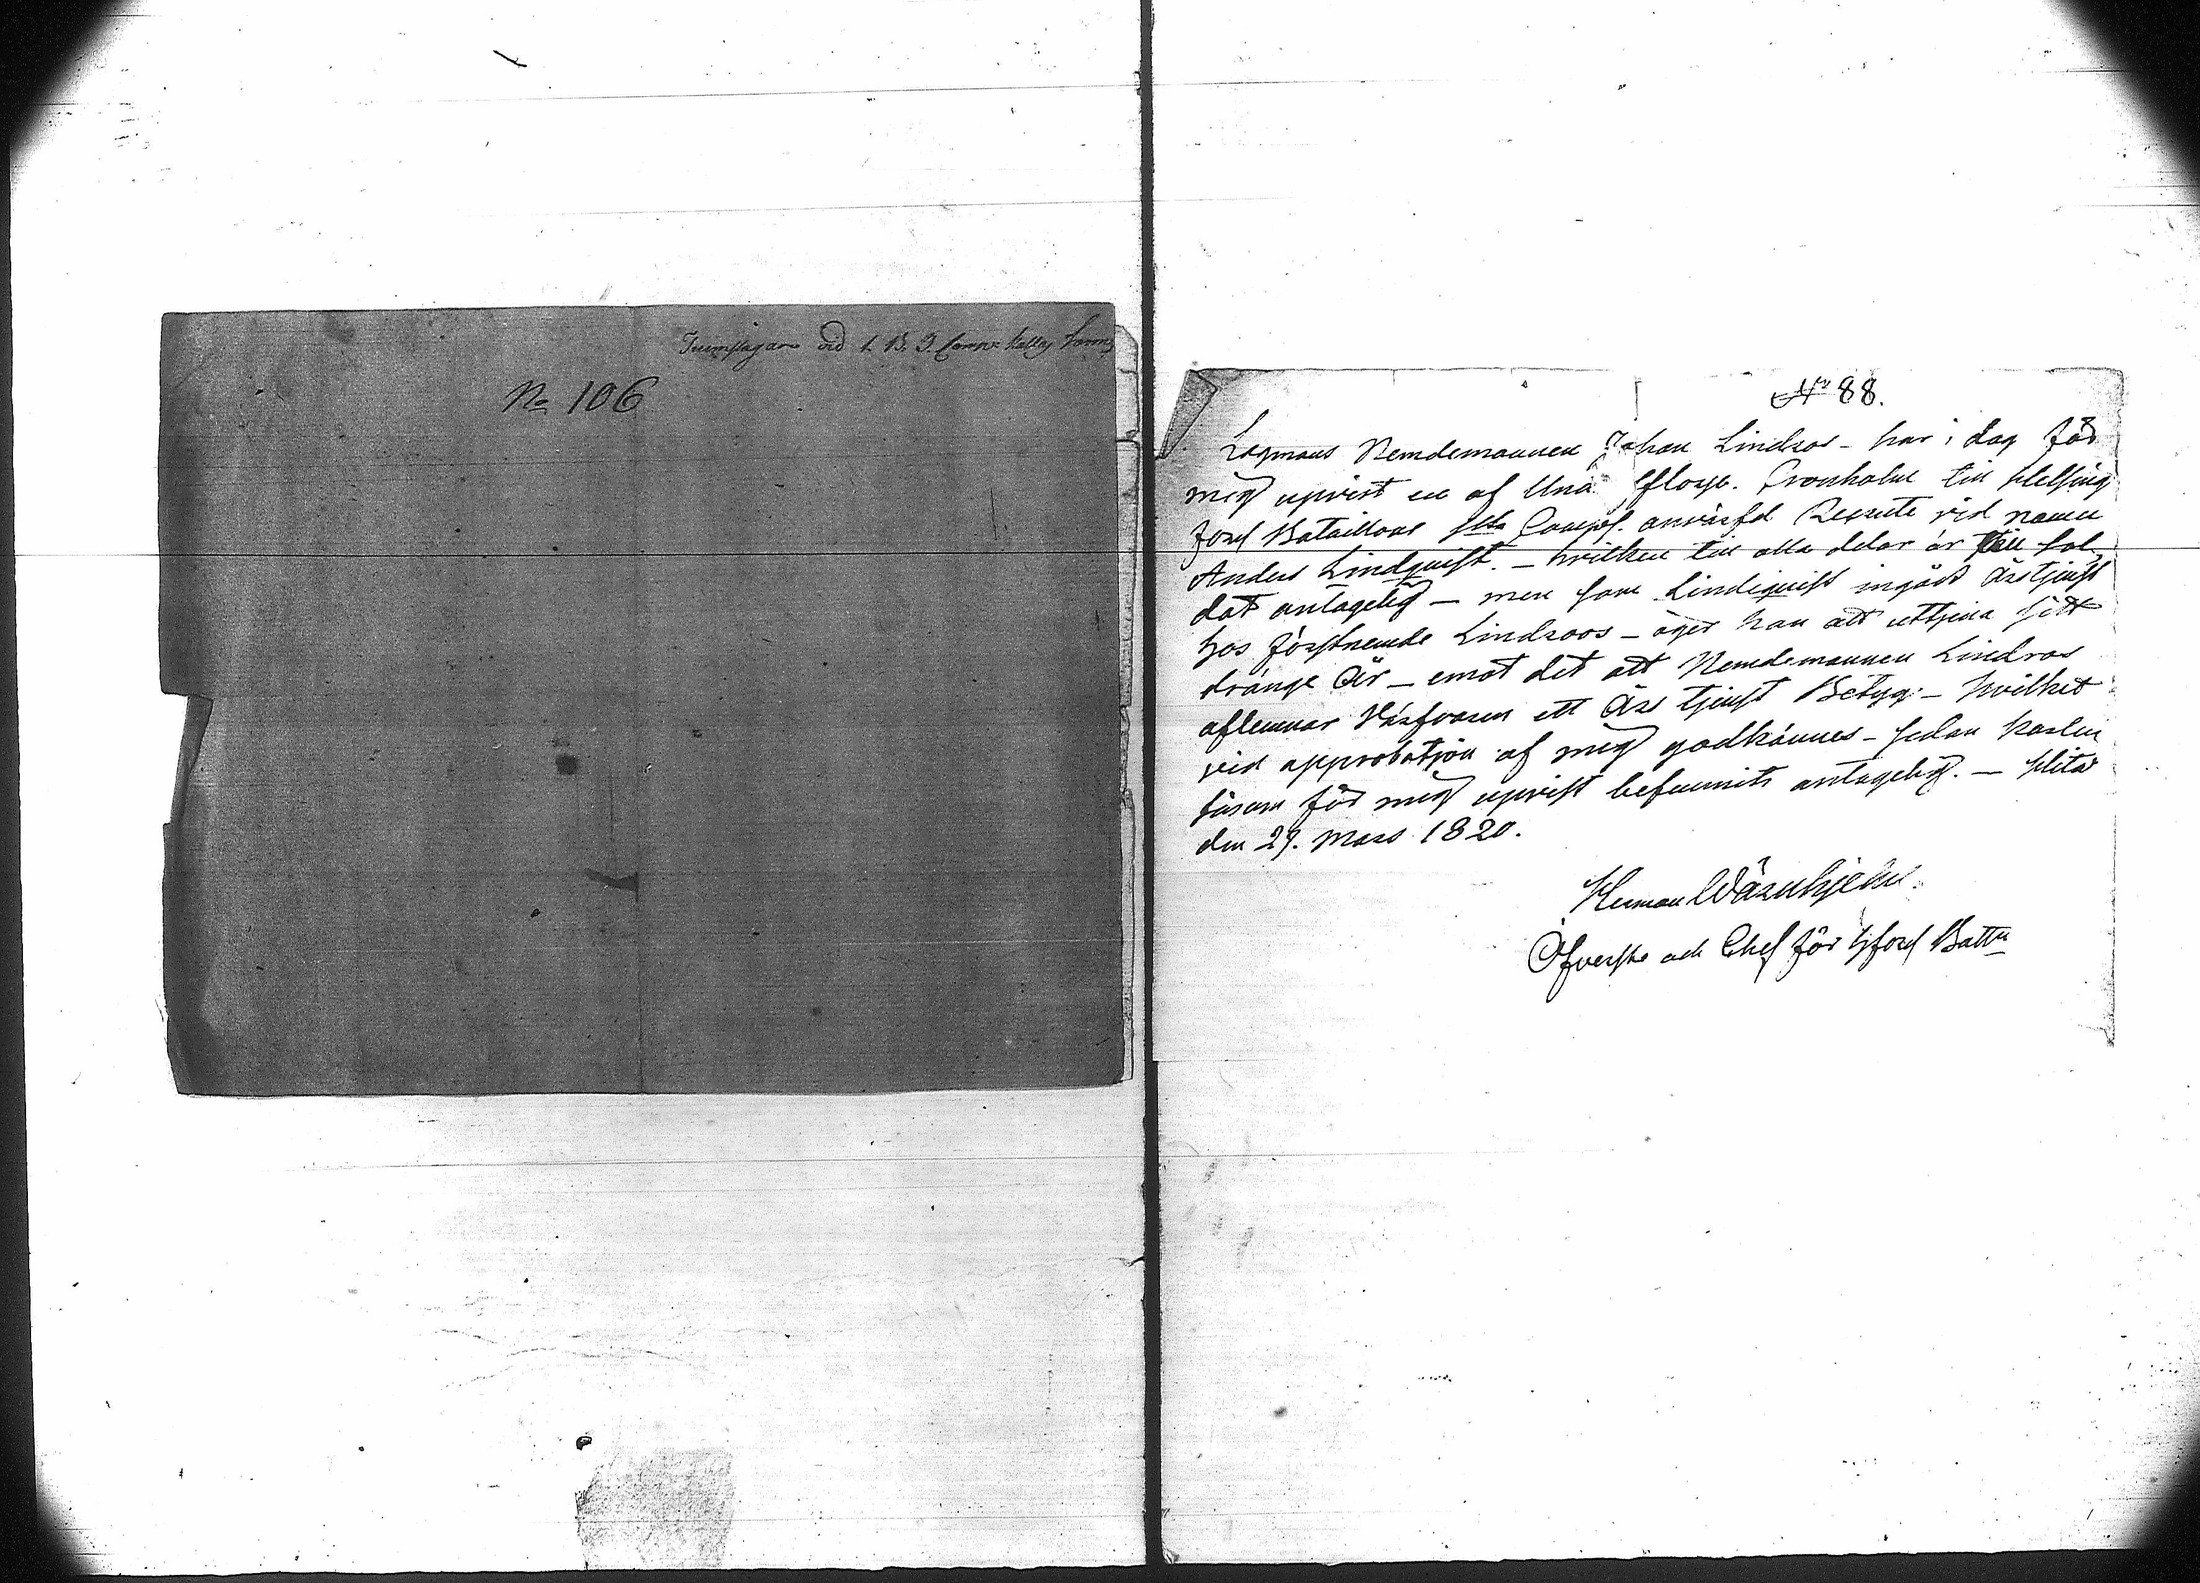 Trumslagare vid 1. B. 3. Comp:
No 106
No 88.
Lagmans Nemdemannen Johan Lindros - har i dag för
mig upvist en af Und Cronholm till Helsing
fors Bataillons Comps. anvärfd Recrute vid namn
Anders Lindquist. - hvilken till alla delar är till Sol
dat antagelig - men som Lindquist ingådt Årstjenst
hos förstnemde Lindroos - äger han att uttjena sitt
dränge År - emot det att Nemdemannen Lindros
aflemnar Värfvaren ett Års tjenst Betyg. - hvilket
vid approbation af mig godkännes - sedan karlen
för mig upvist befunnits antagelig. -
den 29. Mars 1820.
Herman Wärnhjelm.
Öfverste och Chef för Hfors Battn